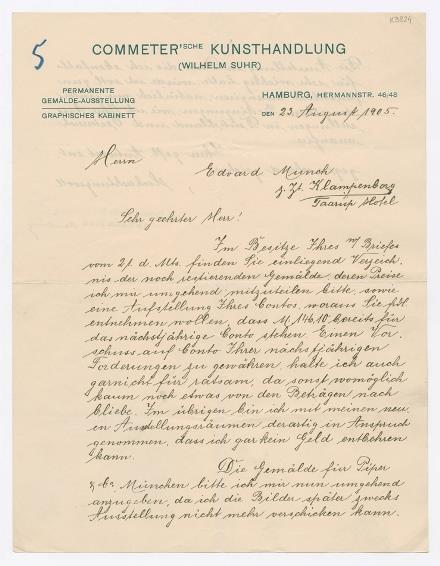 K3824
5
COMMETER'SCHE KUNSTHANDLUNG
(WILHELM SUHR)
PERMANENTE
GEMÄLDE-AUSSTELLUNG
GRAPHISCHES KABINETT
HAMBURG, HERMANNSTR. 46/48
DEN 23. August 1905.
Herrn
Edvard Munch
z. Zt. Klampenborg
Taarup Hotel
Sehr geehrter Herr!
Im Besitze Ihres Briefes
vom 21. d. Mts. finden Sie einliegend Verzeich-
nis der noch restierenden Gemälde, deren Preise
ich mir umgehend mitzuteilen bitte, sowie
eine Aufstellung Ihres Contos, woraus Sie
entnehmen wollen, dass M 146.10 bereits für
das nächstjährige Conto stehen. Einen Vor-
schuss auf Conto Ihrer nächstjährigen
Forderungen zu gewähren, halte ich auch
garnicht für ratsam, da sonst womöglich
kaum noch etwas von den Beträgen nach
bliebe. Im übrigen bin ich mit meinen neu-
en Ausstellungsräumen derartig in Anspruch
genommen, dass ich gar kein Geld entbehren
kann.
Die Gemälde für Piper
& Co. München bitte ich mir nun umgehend
anzugeben, da ich die Bilder später zwecks
Ausstellung nicht mehr verschicken kann.